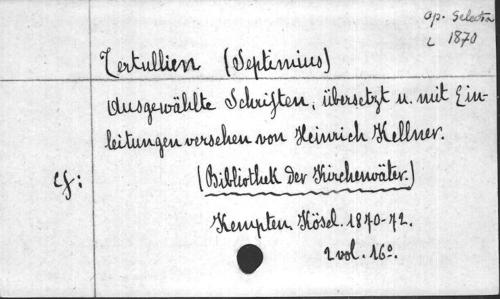 op. Selecta
L 1870
Tertullien (Septimius)
Ausgewählte Schriften, übersetzt u. mit Ein-
leitungen versehen von Heinrich Kellner.
cf: (Bibliothek der Kirchenväter.)
Kempten. Kösel. 1870-72.
2 vol. 16º.